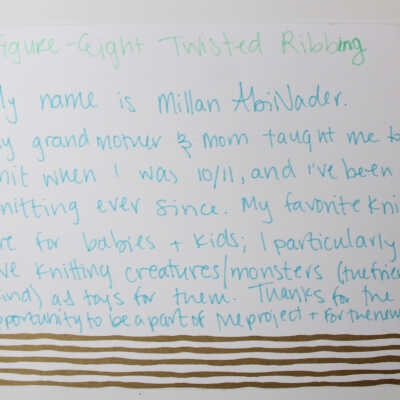 igure-Eight Twisted Ribbing
y name is Millan AbiNader.
y grandmother & mom taught me to
nit when I was 10/11, and I've been
nitting ever since. My favorite kni
re for babies + kids; I particularly
ve knitting creatures/monsters (the frien
kind) as toys for them. Thanks for the
pportunity to be a part of the project + for the new